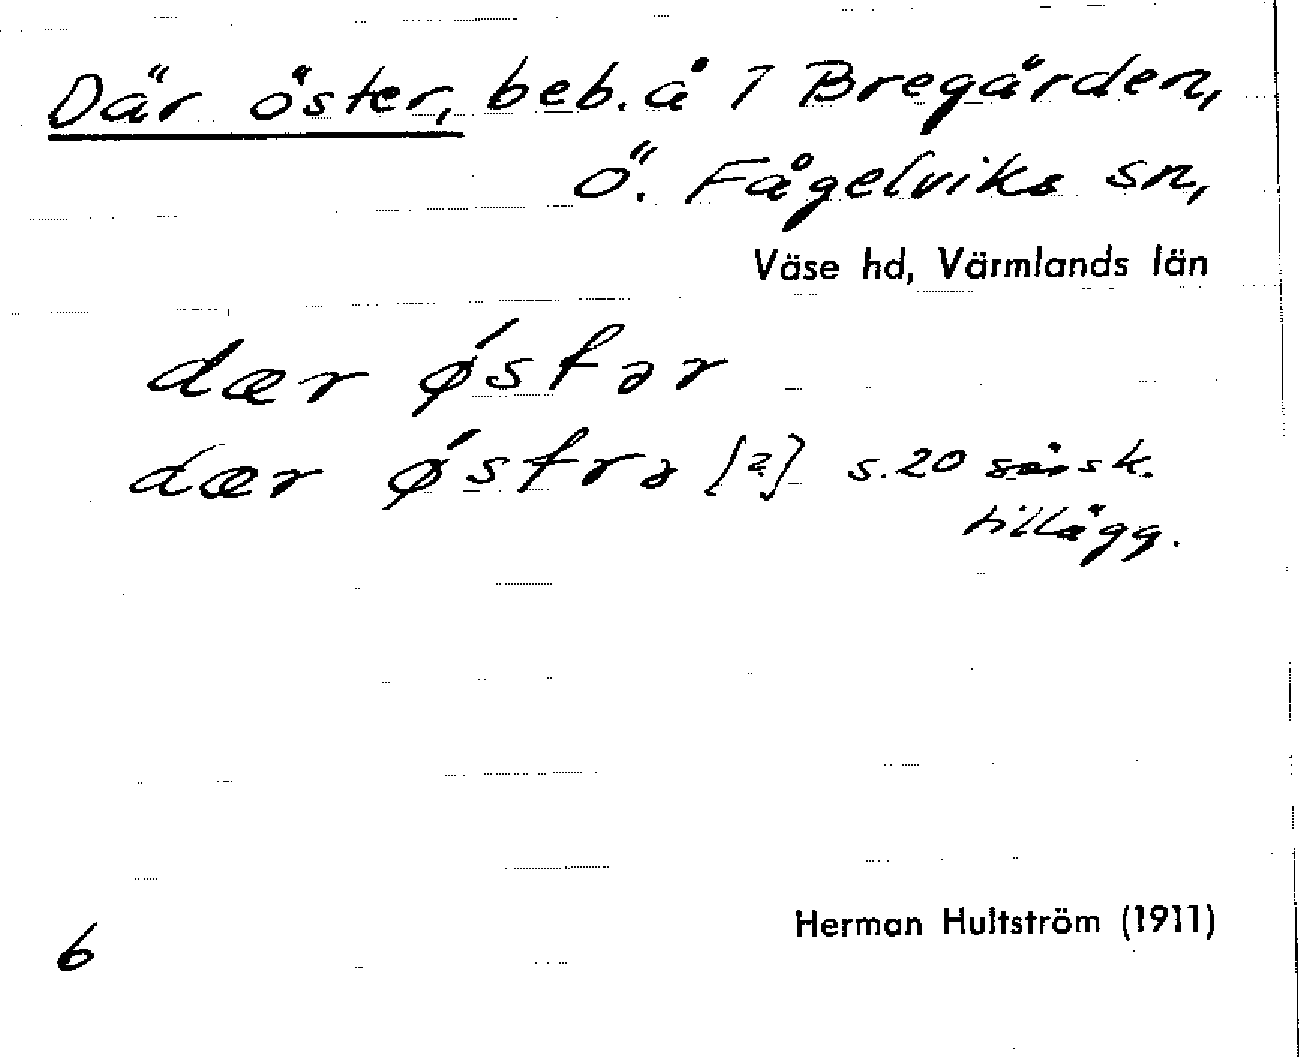 Där öster, beb. å 1 Bregården,
Ö. Fågelviks sn,
Väse hd, Värmlands län
dær ǿstər
dær ǿstrə [?] s. 20 särsk.
tillägg.
Herman Hultström (1911)
6